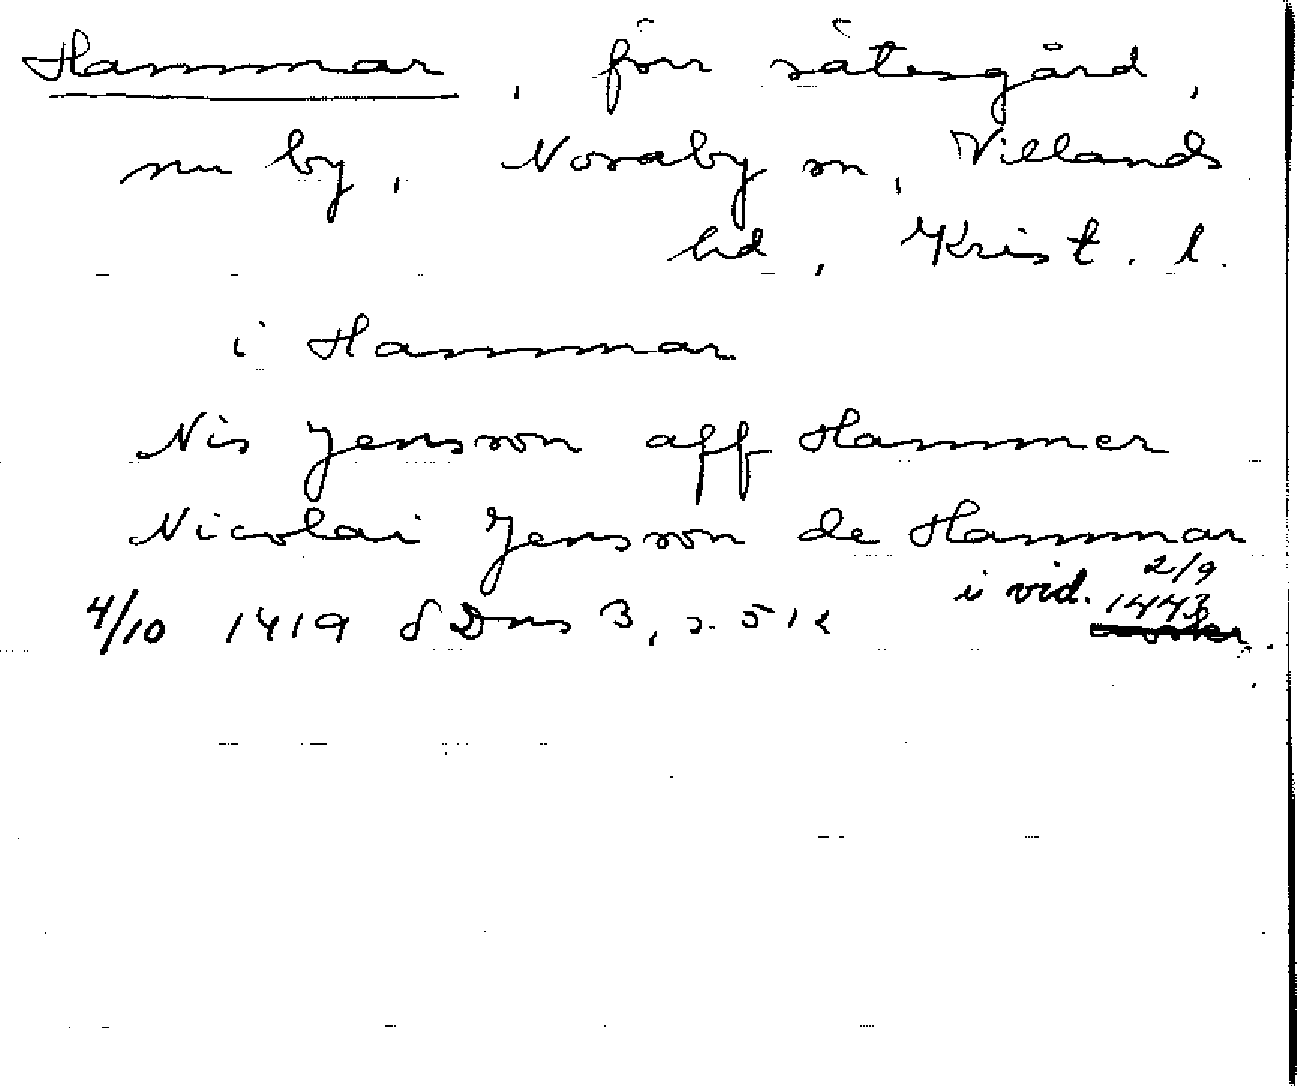 Hammar, förr sätesgård,
nu by, Nosaby sn, Villands
hd, Krist. l.
i Hammar
Nis Jensson aff Hammer
Nicolai Jensson de Hammar
i vid. 2/9 1443
4/10 1419 SDns 3, s. 512